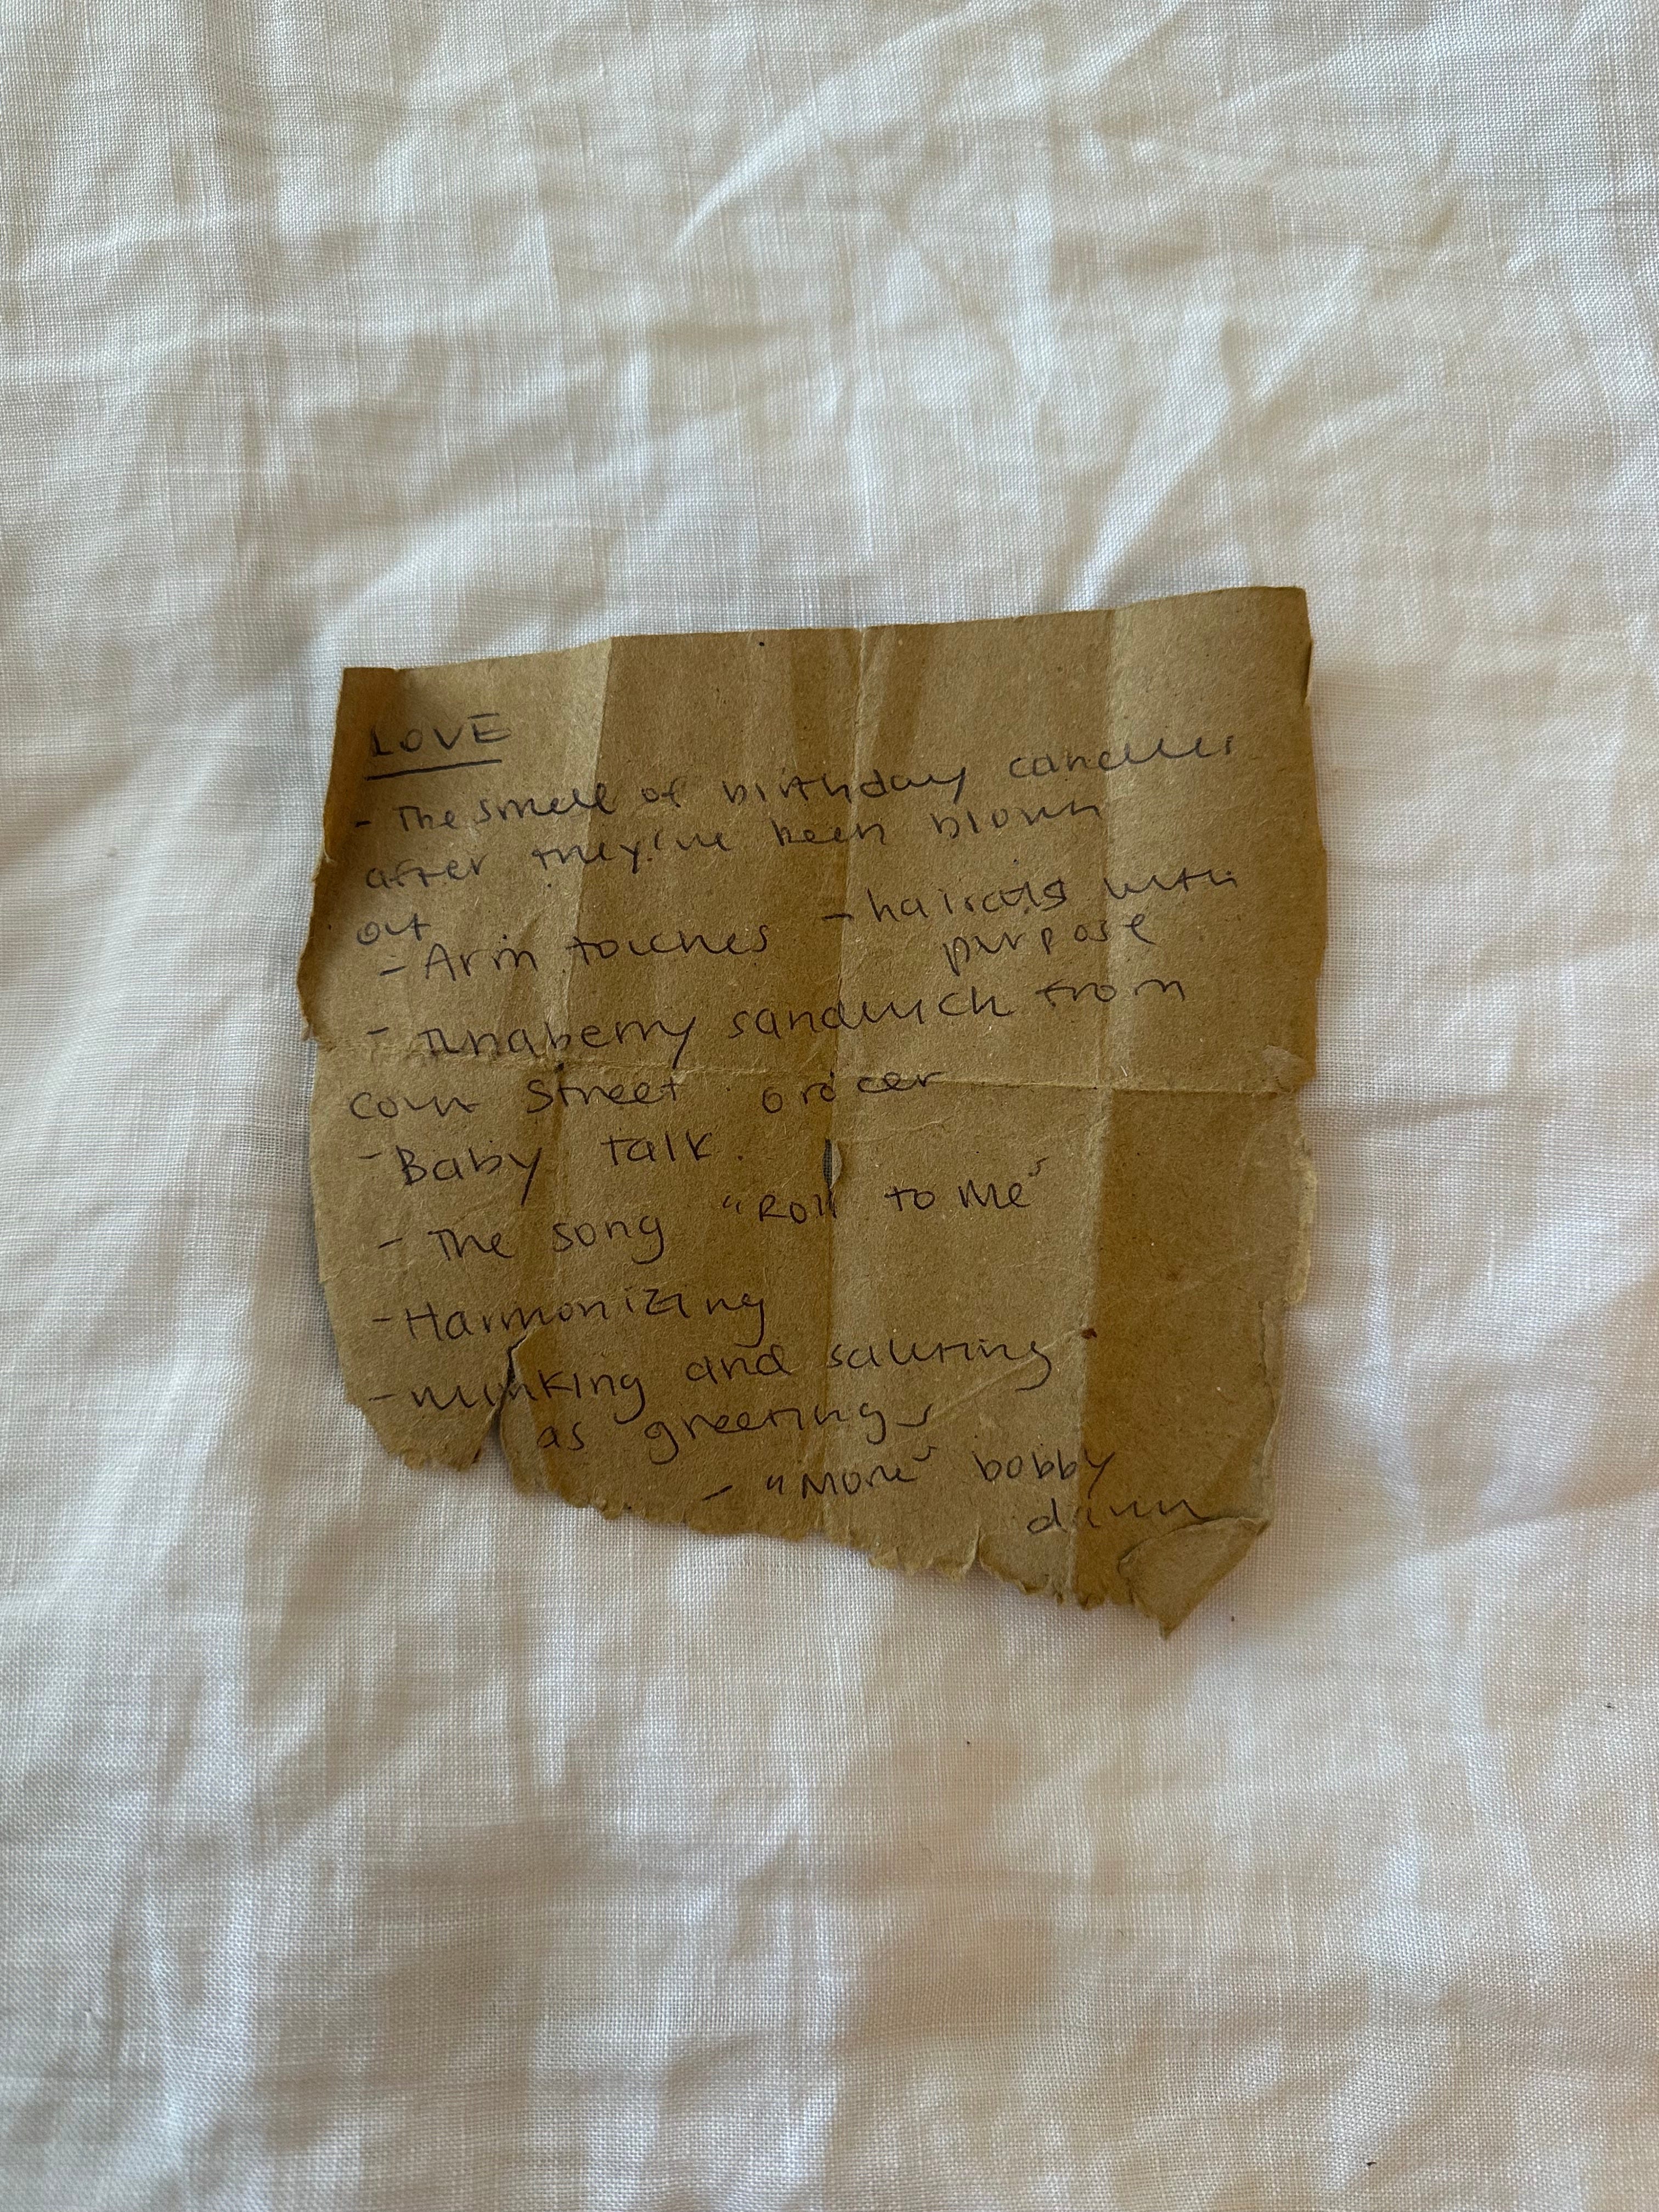 LOVE
- The smell of birthday candles
after they've been blown
out
- Arm touches
- haircuts with
purpose
- Tunaberry sandwich from
Court Street Grocer
- Baby talk
- The song "Roll to Me"
- Harmonizing
- winking and saluting
as greetings
- "More" bobby